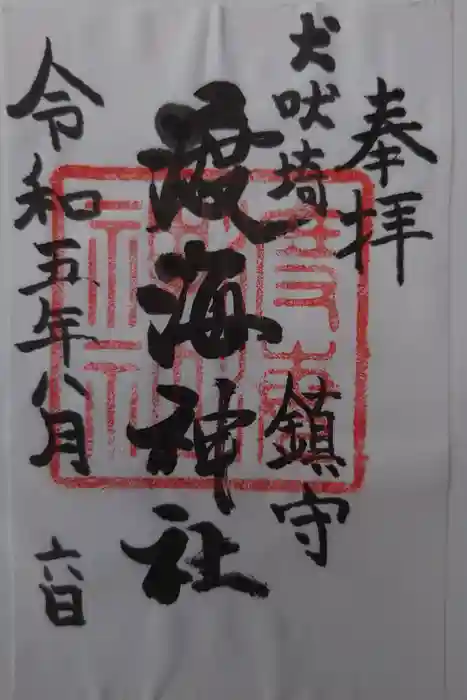 奉拝
犬吠埼
鎮守
渡海神社
令和五年八月
六日